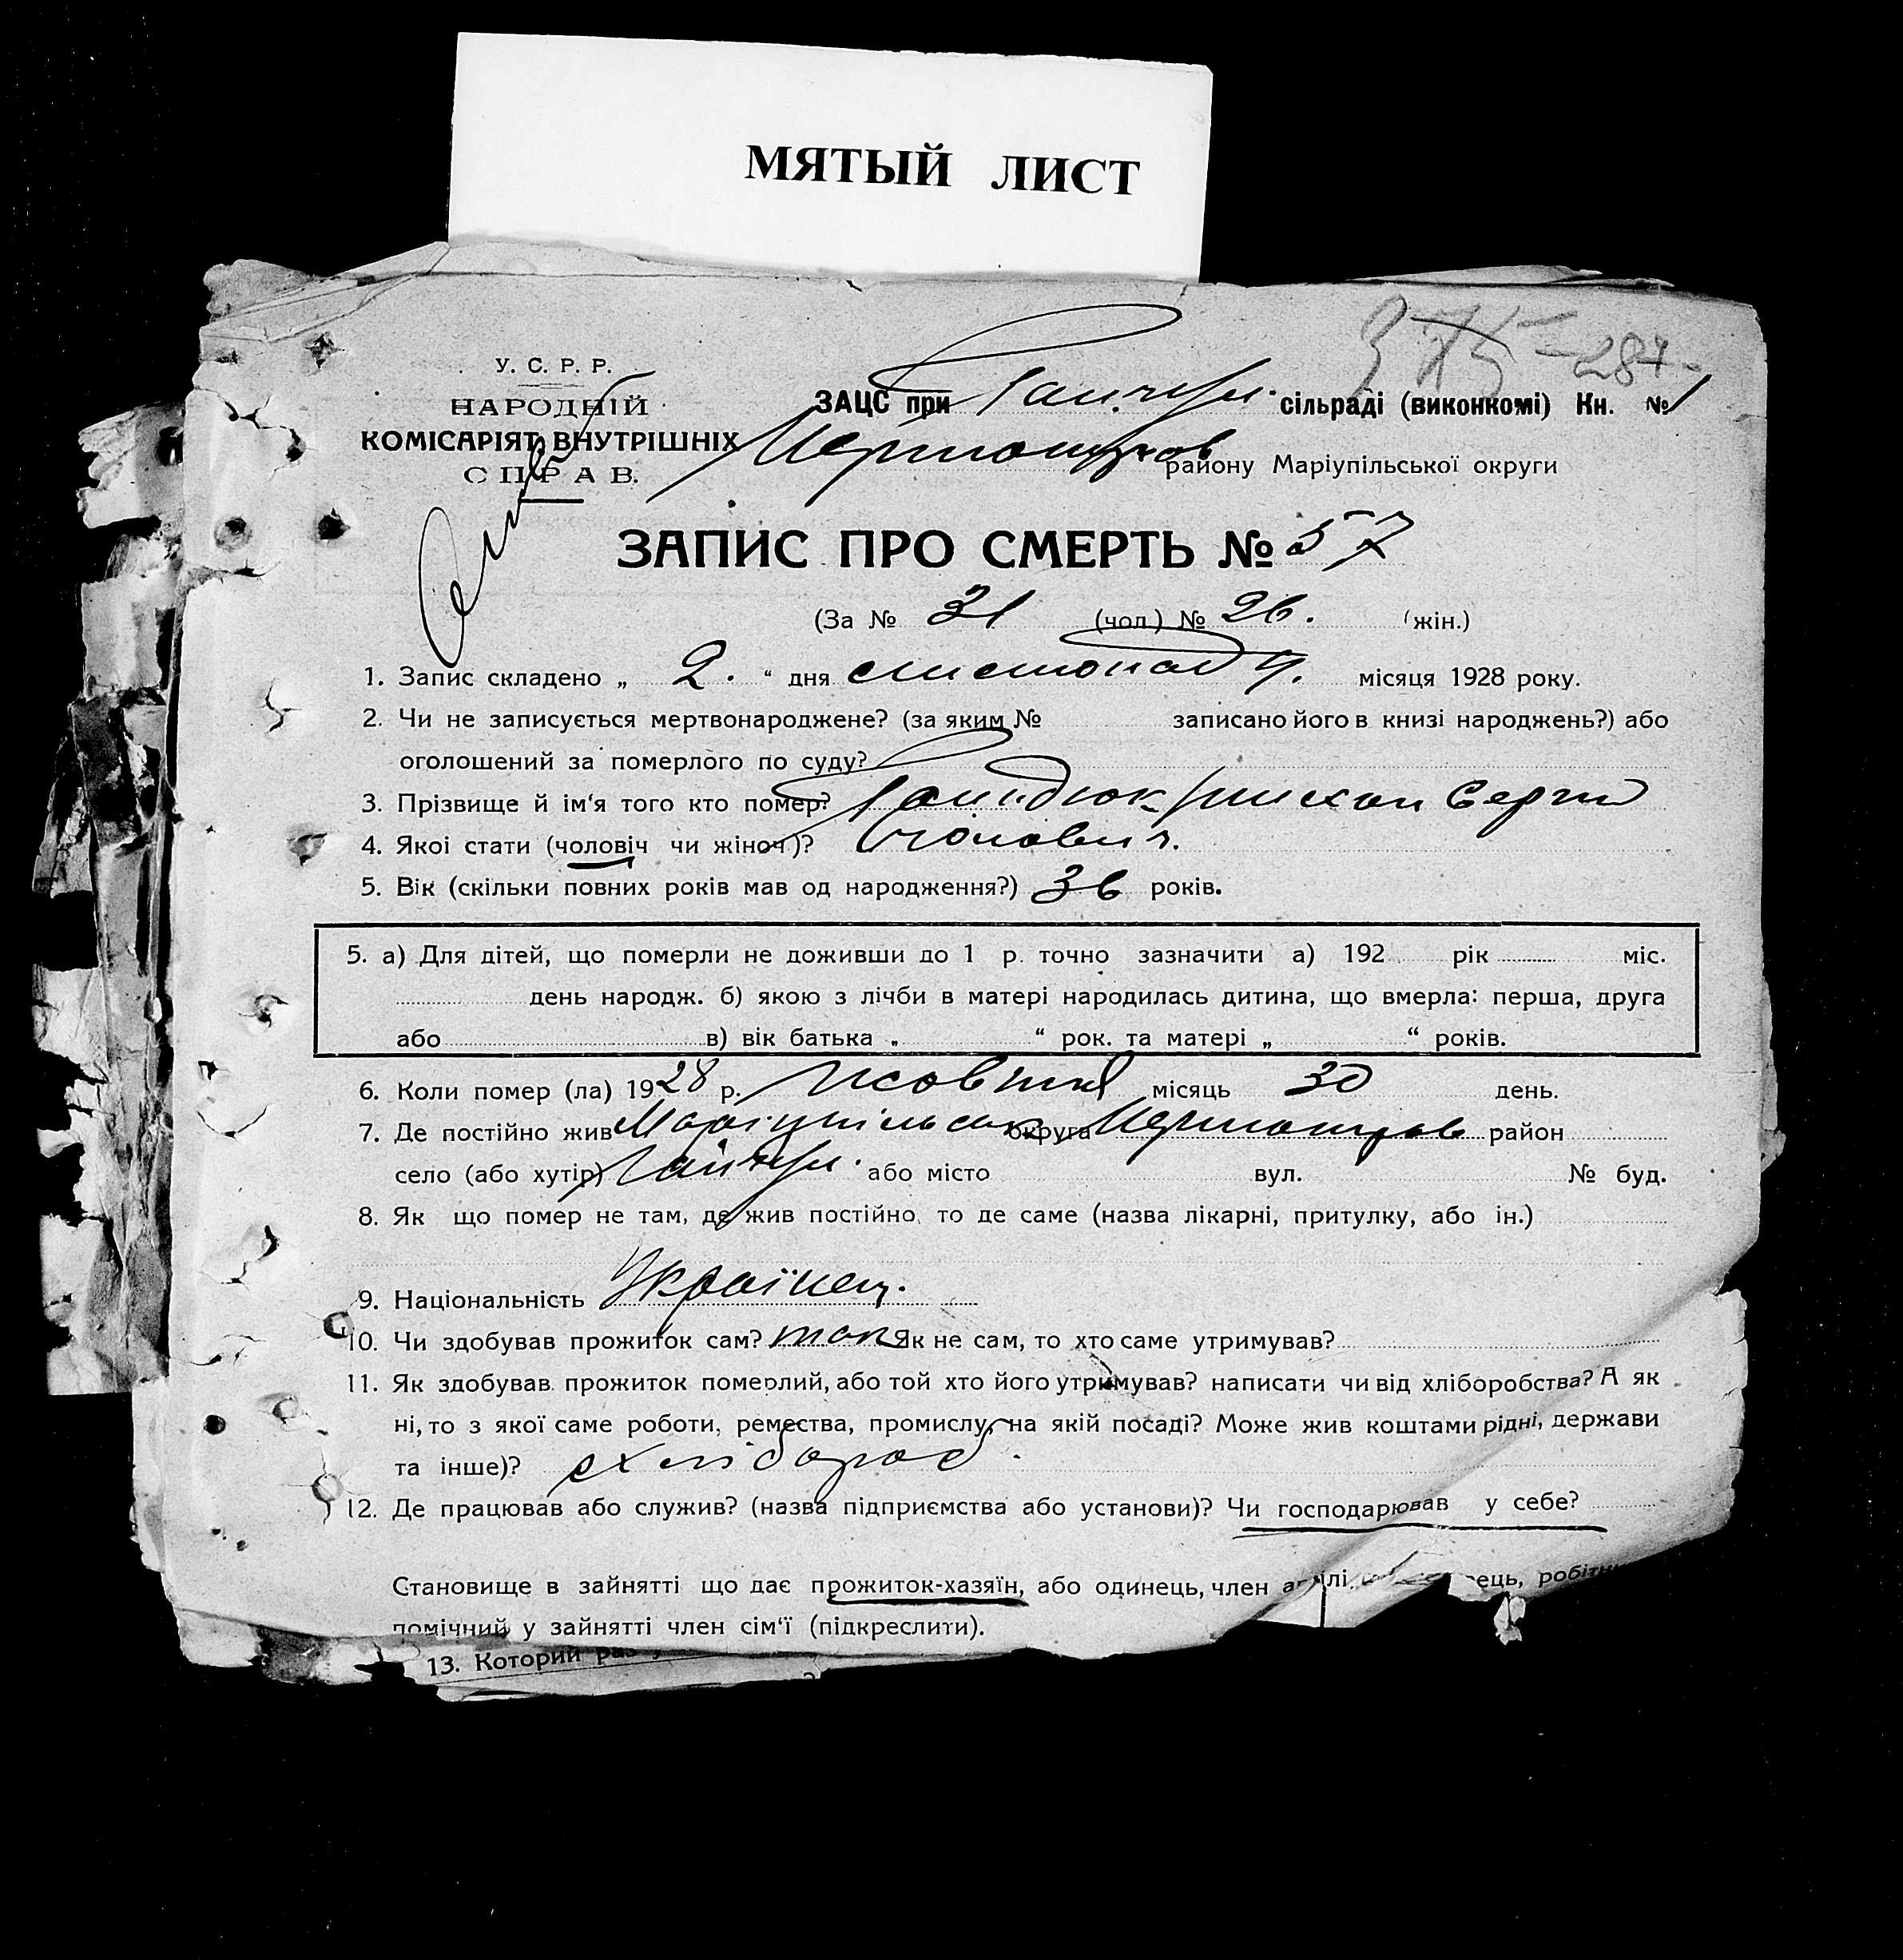 МЯТЫЙ ЛИСТ
284
У. С. Р. Р.
НАРОДНІЙ
КОМІСАРІЯТ ВНУТРІШНІХ
СПРАВ.
ЗАЦС при сільраді (виконкомі) Кн. № 1
району Маріупільської округи
ЗАПИС ПРО СМЕРТЬ № 57
(За № 31 (чол) № 26. (жін.)
1. Запис складено „ 2. “ дня листопада місяця 1928 року.
2. Чи не записується мертвонароджене? (за яким № записано його в книзі народжень?) або
оголошений за померлого по суду?
3. Прізвище й ім‘я того кто помер? Сергій
4. Якоі стати (чоловіч чи жіноч)? Чоловіч.
5. Вік (скільки повних років мав од народження?) 36 років.
5. а) Для дітей, що померли не доживши до 1 р. точно зазначити а) 192 рік міс.
день народж. б) якою з лічби в матері народилась дитина, що вмерла: перша, друга
або в) вік батька „ “ рок. та матері „ “ років.
6. Коли помер (ла) 1928 р. Жовтня місяць 30 день.
7. Де постійно жив Маріупільська округа район
село (або хутір) або місто вул. № буд.
8. Як що помер не там, де жив постійно, то де саме (назва лікарні, притулку, або ін.)
9. Національність Українец.
10. Чи здобував прожиток сам? так Як не сам, то хто саме утримував?
11. Як здобував прожиток померлий, або той хто його утримував? написати чи від хліборобства? А як
ні, то з якої саме роботи, ремества, промислу, на якій посаді? Може жив коштами рідні, держави
та інше)? хлібороб.
12. Де працював або служив? (назва підприємства або установи)? Чи господарював у себе?
Становище в зайнятті що дає прожиток-хазяїн, або одинець, член
помічний у зайнятті член сім‘ї (підкреслити).
13. Которий раз